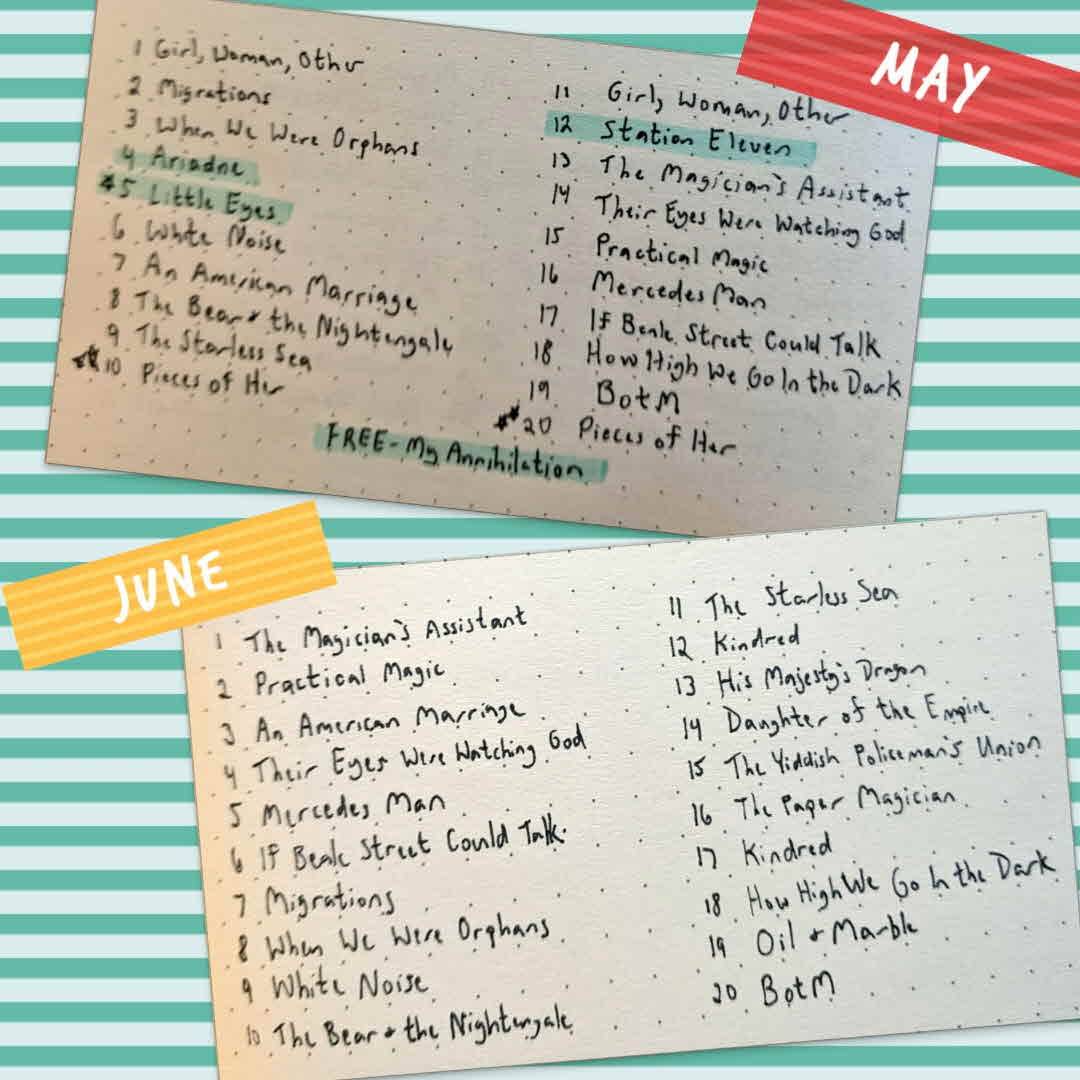 MAY
1 Girl, Woman, Other
2 Migrations
3 When We Were Orphans
4 Ariadne
*5 Little Eyes
6 White Noise
7 An American Marriage
8 The Bear & the Nightengale
9 The Starless Sea
**10 Pieces of Her
11 Girl, Woman, Other
12 Station Eleven
13 The Magician's Assistant
14 Their Eyes Were Watching God
15 Practical Magic
16 Mercedes Man
17 If Beale Street Could Talk
18 How High We Go In the Dark
19 BotM
**20 Pieces of Her
FREE - My Annihilation
JUNE
1 The Magician's Assistant
2 Practical Magic
3 An American Marriage
4 Their Eyes Were Watching God
5 Mercedes Man
6 If Beale Street Could Talk.
7 Migrations
8 When We Were Orphans
9 White Noise
10 The Bear & the Nightengale
11 The Starless Sea
12 Kindred
13 His Majesty's Dragon
14 Daughter of the Empire
15 The Yiddish Policeman's Union
16 The Paper Magician
17 Kindred
18 How High We Go In the Dark
19 Oil & Marble
20 BotM